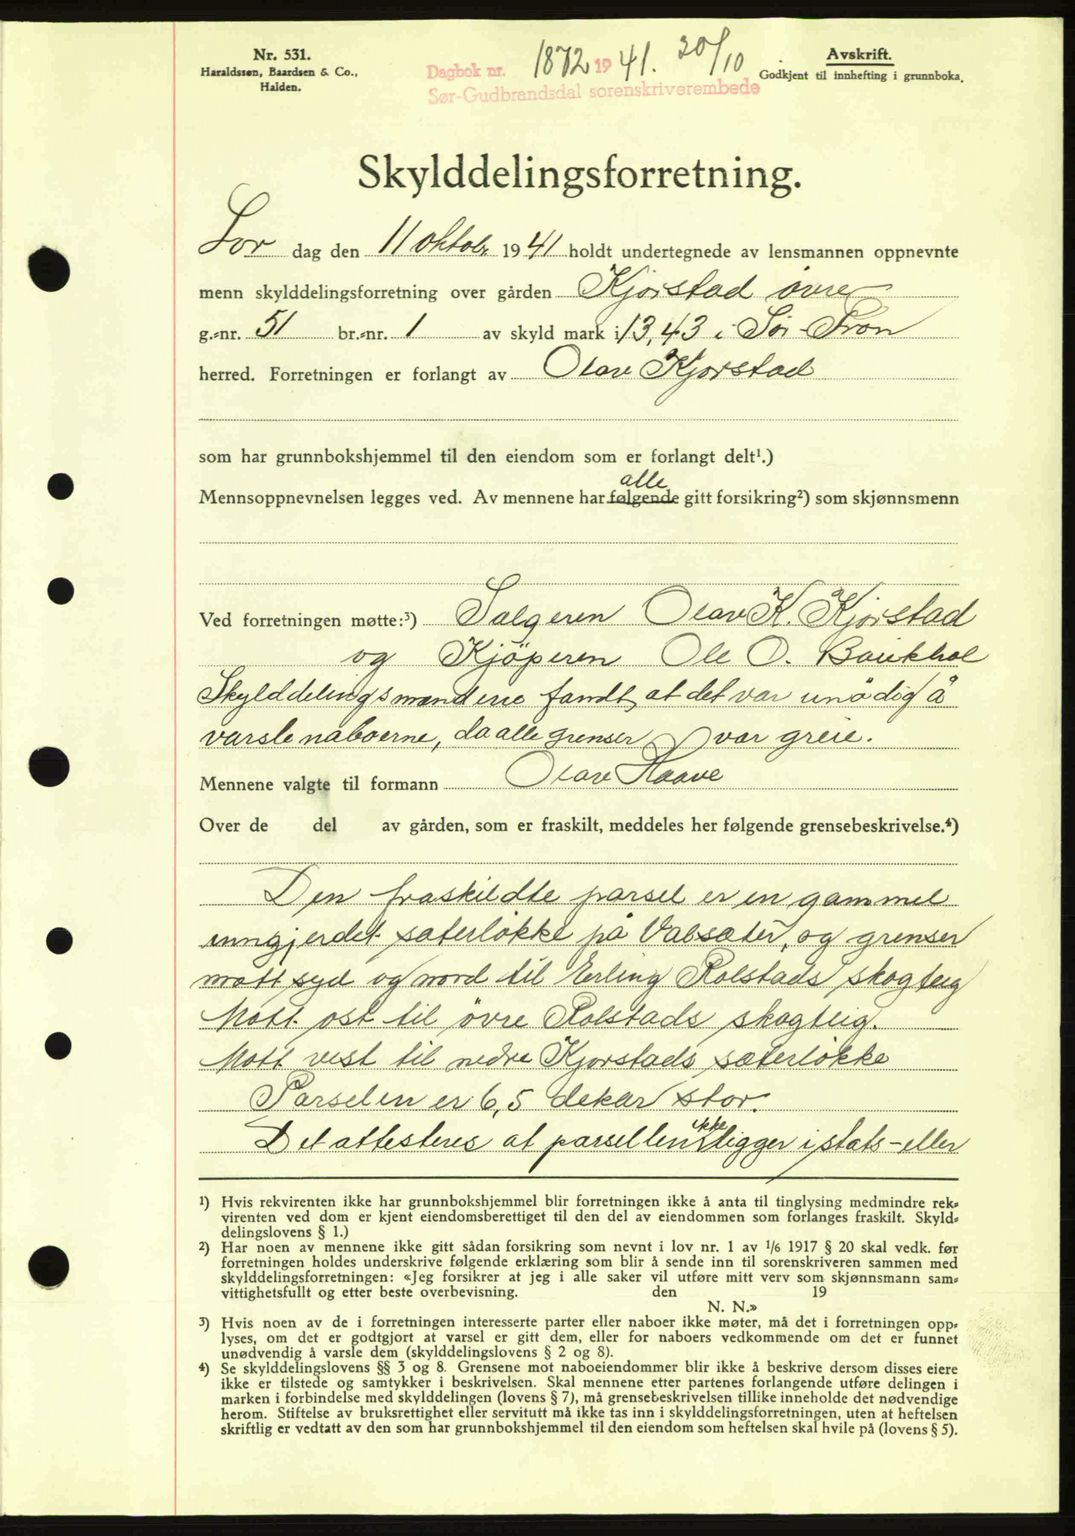 Nr. 531.
Haraldssøn, Baardsen & Co.,
Halden.
Dagbok nr. 1872 1941. 20/10
Sør-Gudbrandsdal sorenskriverembede
Avskrift.
Godkjent til innhefting i grunnboka.
Skylddelingsforretning.
Lør dag den 11 oktob. 1941 holdt undertegnede av lensmannen oppnevnte
menn skylddelingsforretning over gården Kjorstad øvre
g.-nr. 51 br.-nr. 1 av skyld mark 13,43 i Sør-Fron
herred. Forretningen er forlangt av Olav Kjorstad
som har grunnbokshjemmel til den eiendom som er forlangt delt¹.)
alle
Mennsoppnevnelsen legges ved. Av mennene har følgende gitt forsikring²) som skjønnsmenn
Ved forretningen møtte:³) Selgeren Olav K. Kjorstad
og Kjöperen Ole O. Baukhol
Skylddelingsmændene fandt, at det var unödig å
varsle naboerne, da alle grenser var greie.
Mennene valgte til formann Olav Haave
Over de del av gården, som er fraskilt, meddeles her følgende grensebeskrivelse.⁴)
Den fraskildte parsel er en gammel
inngjerdet sæterløkke på Valsæter, og grenser
mott syd og nord til Erling Rolstads skogteig
Mott øst til övre Rolstads skogteig.
Mott vest til nedre Kjorstads sæterløkke
Parselen er 6,5 dekar stor.
ikke
Det attesteres at parsellen ligger i stats- eller
¹) Hvis rekvirenten ikke har grunnbokshjemmel blir forretningen ikke å anta til tinglysing medmindre rek-
virenten ved dom er kjent eiendomsberettiget til den del av eiendommen som forlanges fraskilt. Skyld-
delingslovens § 1.)
²) Har noen av mennene ikke gitt sådan forsikring som nevnt i lov nr. 1 av 1/6 1917 § 20 skal vedk. før
forretningen holdes underskrive følgende erklæring som blir å sende inn til sorenskriveren sammen med
skylddelingsforretningen: «Jeg forsikrer at jeg i alle saker vil utføre mitt verv som skjønnsmann sam-
vittighetsfullt og etter beste overbevisning. den 19
N. N.»
³) Hvis noen av de i forretningen interesserte parter eller naboer ikke møter, må det i forretningen opp-
lyses, om det er godtgjort at varsel er gitt dem, eller for naboers vedkommende om det er funnet
unødvendig å varsle dem (skylddelingslovens § 2 og 8).
⁴) Se skylddelingslovens §§ 3 og 8. Grensene mot naboeiendommer blir ikke å beskrive dersom disses eiere
ikke er tilstede og samtykker i beskrivelsen. Skal mennene etter partenes forlangende utføre delingen i
marken i forbindelse med skylddelingen (lovens § 7), må grensebeskrivelsen tillike inneholde det nødvendige
herom. Stiftelse av bruksrettighet eller servitutt må ikke tas inn i skylddelingsforretningen, uten at heftelsen
skriftlig er vedtatt av den som har grunnbokshjemmel til den eiendom som heftelsen skal hvile på (lovens § 5).